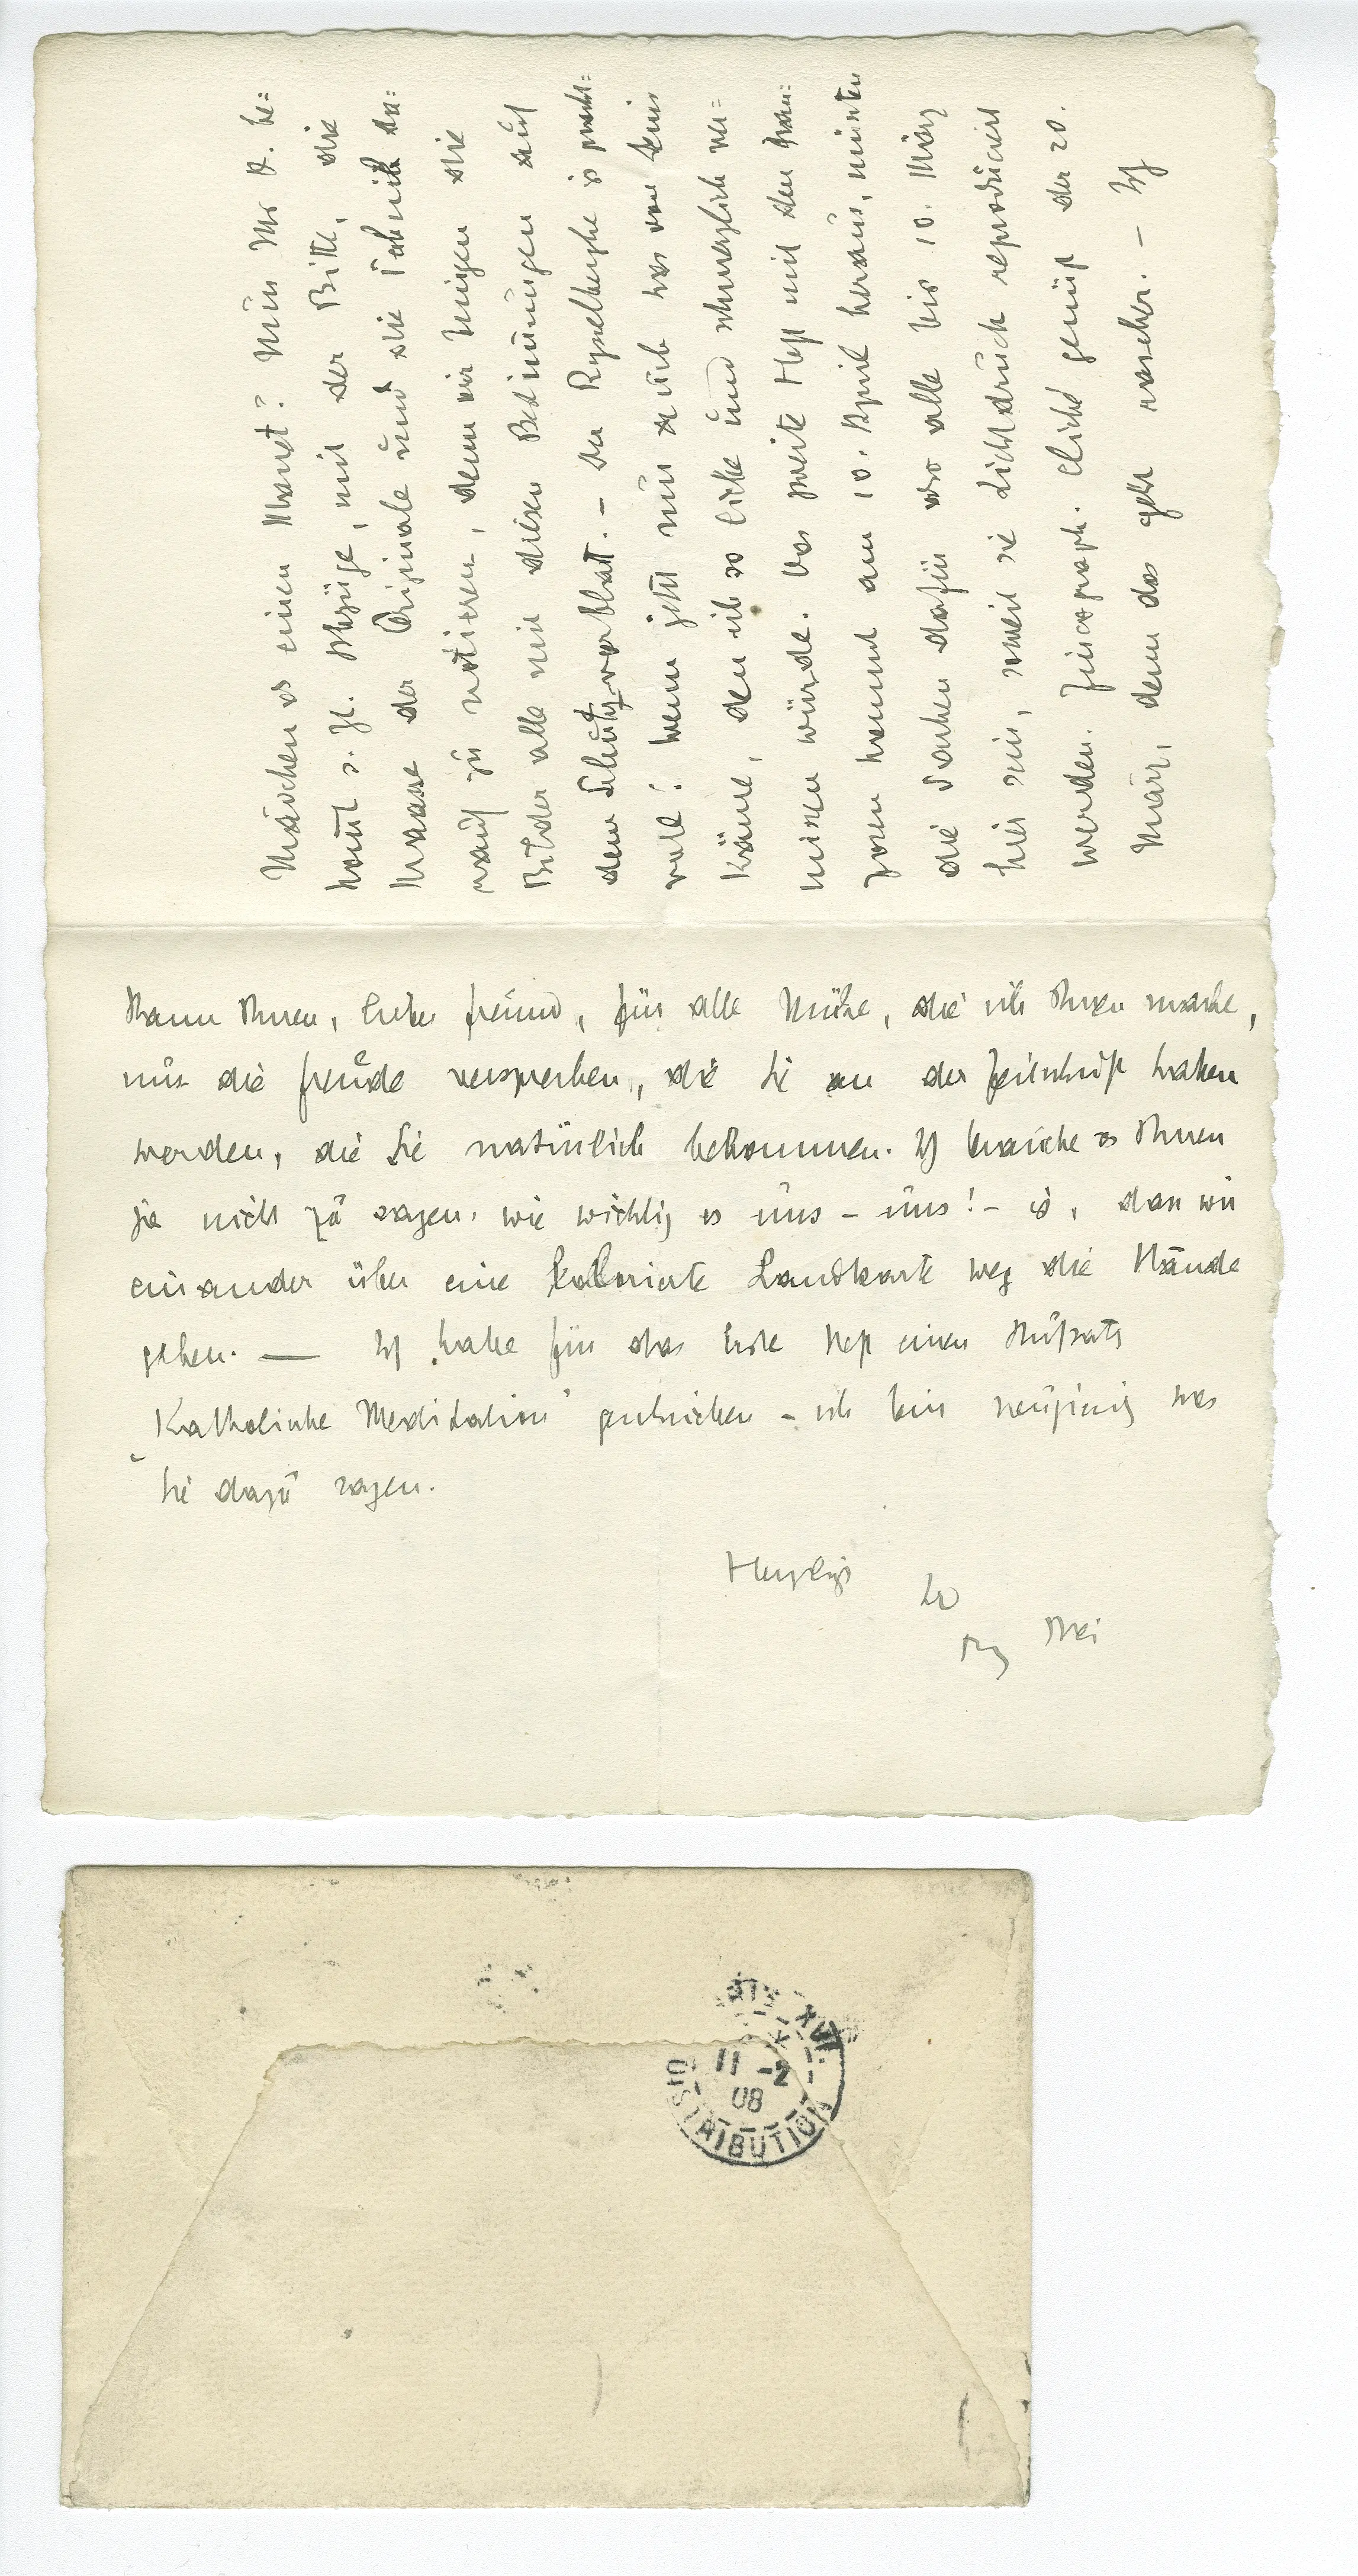 Mädchen es einen Manet? Nun Mr D. be=
komt s. Zt. Abzüge, mit der Bitte, die
Maase der Originale und die Technik da=
rauf zu notieren, denn wir bringen die
Bilder alle mit diesen Bezeichnungen auf
dem Schutzvorblatt. – Der Rysselberghe is pracht=
voll! wenn jetzt nur auch was von
käme, den ich so liebe und schmerzlich ver=
missen würde. Das zweite Heft mit den Fran=
zosen kommt am 10. April heraus, müssten
die Sachen dafür also alle bis 10. März
hier sein, soweit sie Lichtdruck reproduciert
werden. Zincograph. Cliché genügt der 20.
März, denn das geht rascher. – Ich
kann Ihnen, lieber Freund, für alle Mühe, die ich Ihnen mache,
nur die Freude versprechen, die Sie an der Zeitschrift haben
werden, die Sie natürlich bekommen. Ich brauche es Ihnen
ja nicht zu sagen, wie wichtig es uns – uns! – is, dass wir
einander über eine kolorierte Landkarte weg die Hände
geben. — Ich habe für das erste Heft einen Aufsatz
„Katholische Meditation" geschrieben – ich bin neugierig was
Sie dazu sagen.
Herzlichst
Ihr
Blei
PARIS XVI
11 -2
08
DISTRIBUTION